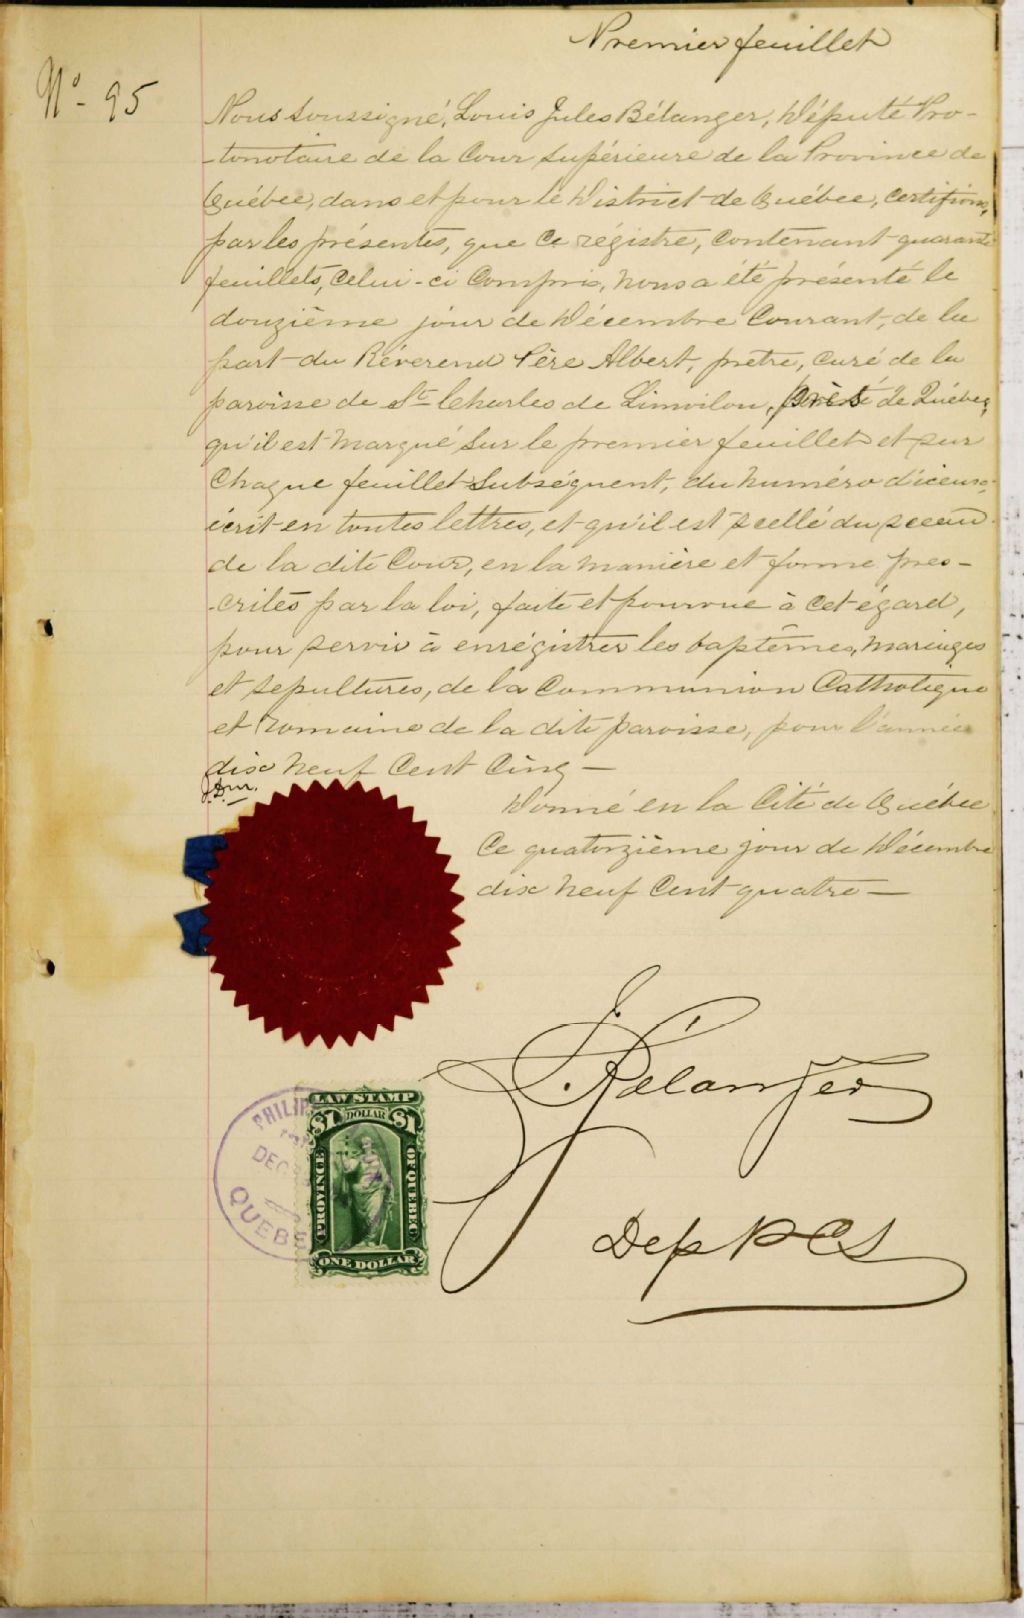 Premier feuillet
No. 95
Nous soussigné, Louis Jules Bélanger, Député Pro-
-tonotaire de la Cour Supérieure de la Province de
Québec, dans et pour le District de Québec, certifions,
par les présentes, que ce régistre, contenant quarante
feuillets, celui-ci compris, nous a été présenté le
douzième jour de Décembre Courant, de la
part du Réverend Père Albert, prètre, curé de la
paroisse de St Charles de Limoilou, près de Québec,
qu'il est marqué sur le premier feuillet et sur
chaque feuillet subséquent, du numéro d'iceux,
écrit en toutes lettres, et qu'il est scellé du sceau
de la dite Cour, en la manière et forme pres-
-crites par la loi, faite et pourvue à cet égard,
pour servir à enrégistrer les baptêmes, mariages
et sépultures, de la Communion Catholique
et romaine de la dite paroisse, pour l'année
dix neuf cent cinq —
Donné en la Cité de Québec
Ce quatorzième jour de Décembre
dix neuf cent quatre —
J. Bélanger
Dep P C S
PHILIP
DEC
QUEBE
LAW STAMP
$1 DOLLAR $1
PROVINCE
OF QUEBEC
ONE DOLLAR